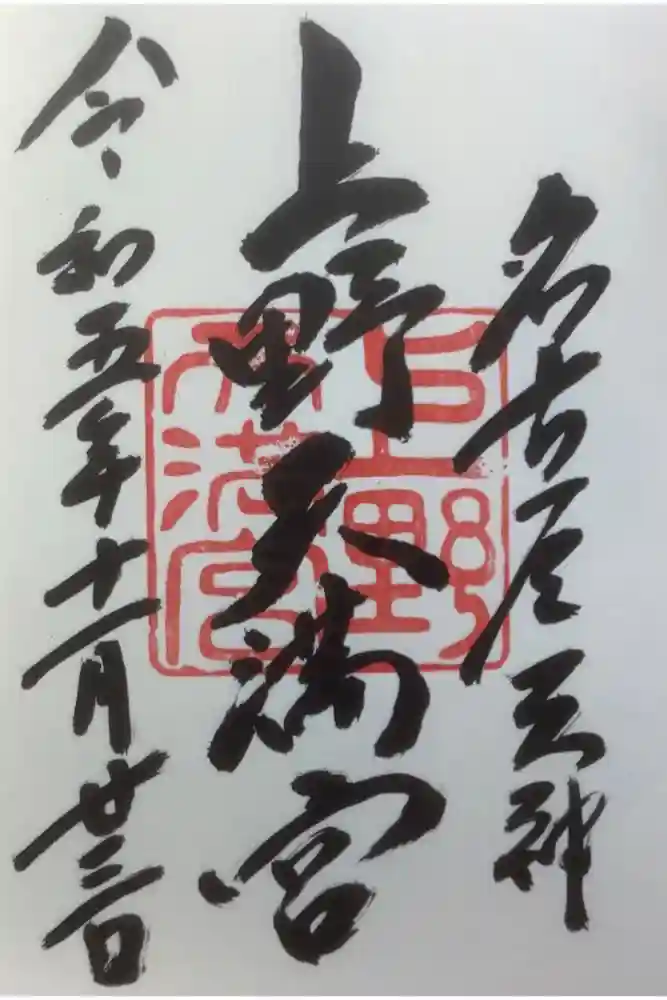 名古屋天神
上野天満宮
上野天満宮
令和五年十一月廿三日